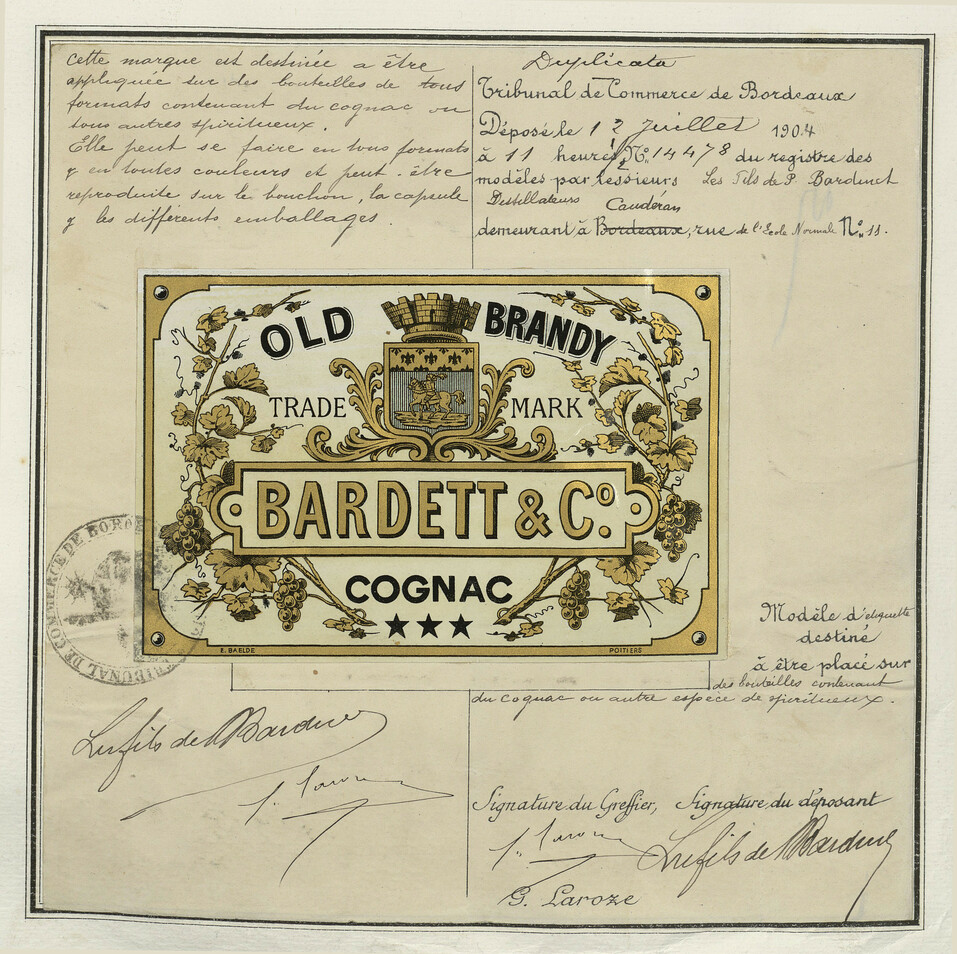 Cette marque est destinée a être
appliquée sur des bouteilles de tous
formats contenant du cognac ou
tous autres spiritueux.
Elle peut se faire en tous formats
& en toutes couleurs et peut-être
reproduite sur le bouchon, la capsule
& les différents emballages.
Duplicata
Tribunal de Commerce de Bordeaux
Déposé le 12 Juillet 1904
à 11 heures, No. 14478 du registre des
modèles par Messieurs Les Fils de P. Bardinet
Distillateurs Caudéran
demeurant à Bordeaux, rue de l'Ecole Normale No. 11.
OLD BRANDY
TRADE MARK
BARDETT & Co.
COGNAC
★★★
E. BAELDE POITIERS
TRIBUNAL DE COMMERCE DE BORDE
Modèle d'étiquette
destiné
à être placé sur
des bouteilles contenant
du cognac ou autre espèce de spiritueux.
Les fils de P Bardinet
Signature du Greffier, Signature du déposant
Les fils de P Bardinet
G. Laroze